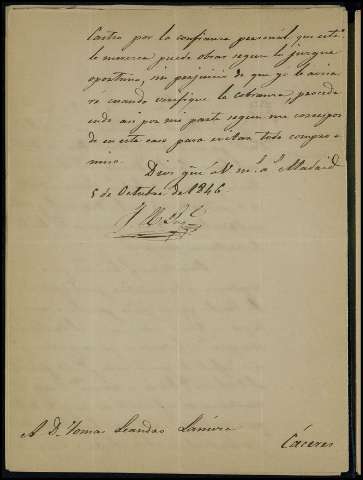 Castro por la confianza personal que este
le merezca puede obrar segun lo juzgue
oportuno, sin perjuicio de que yo le avisa
ré cuando verifique la cobranza, procedi
endo asi por mi parte segun me correspon
de en este caso para evitar todo compro
miso.
Dios gue á V. m.s a.s Madrid
5 de Octubre de 1846
A D. Tomas Leandro
Cáceres